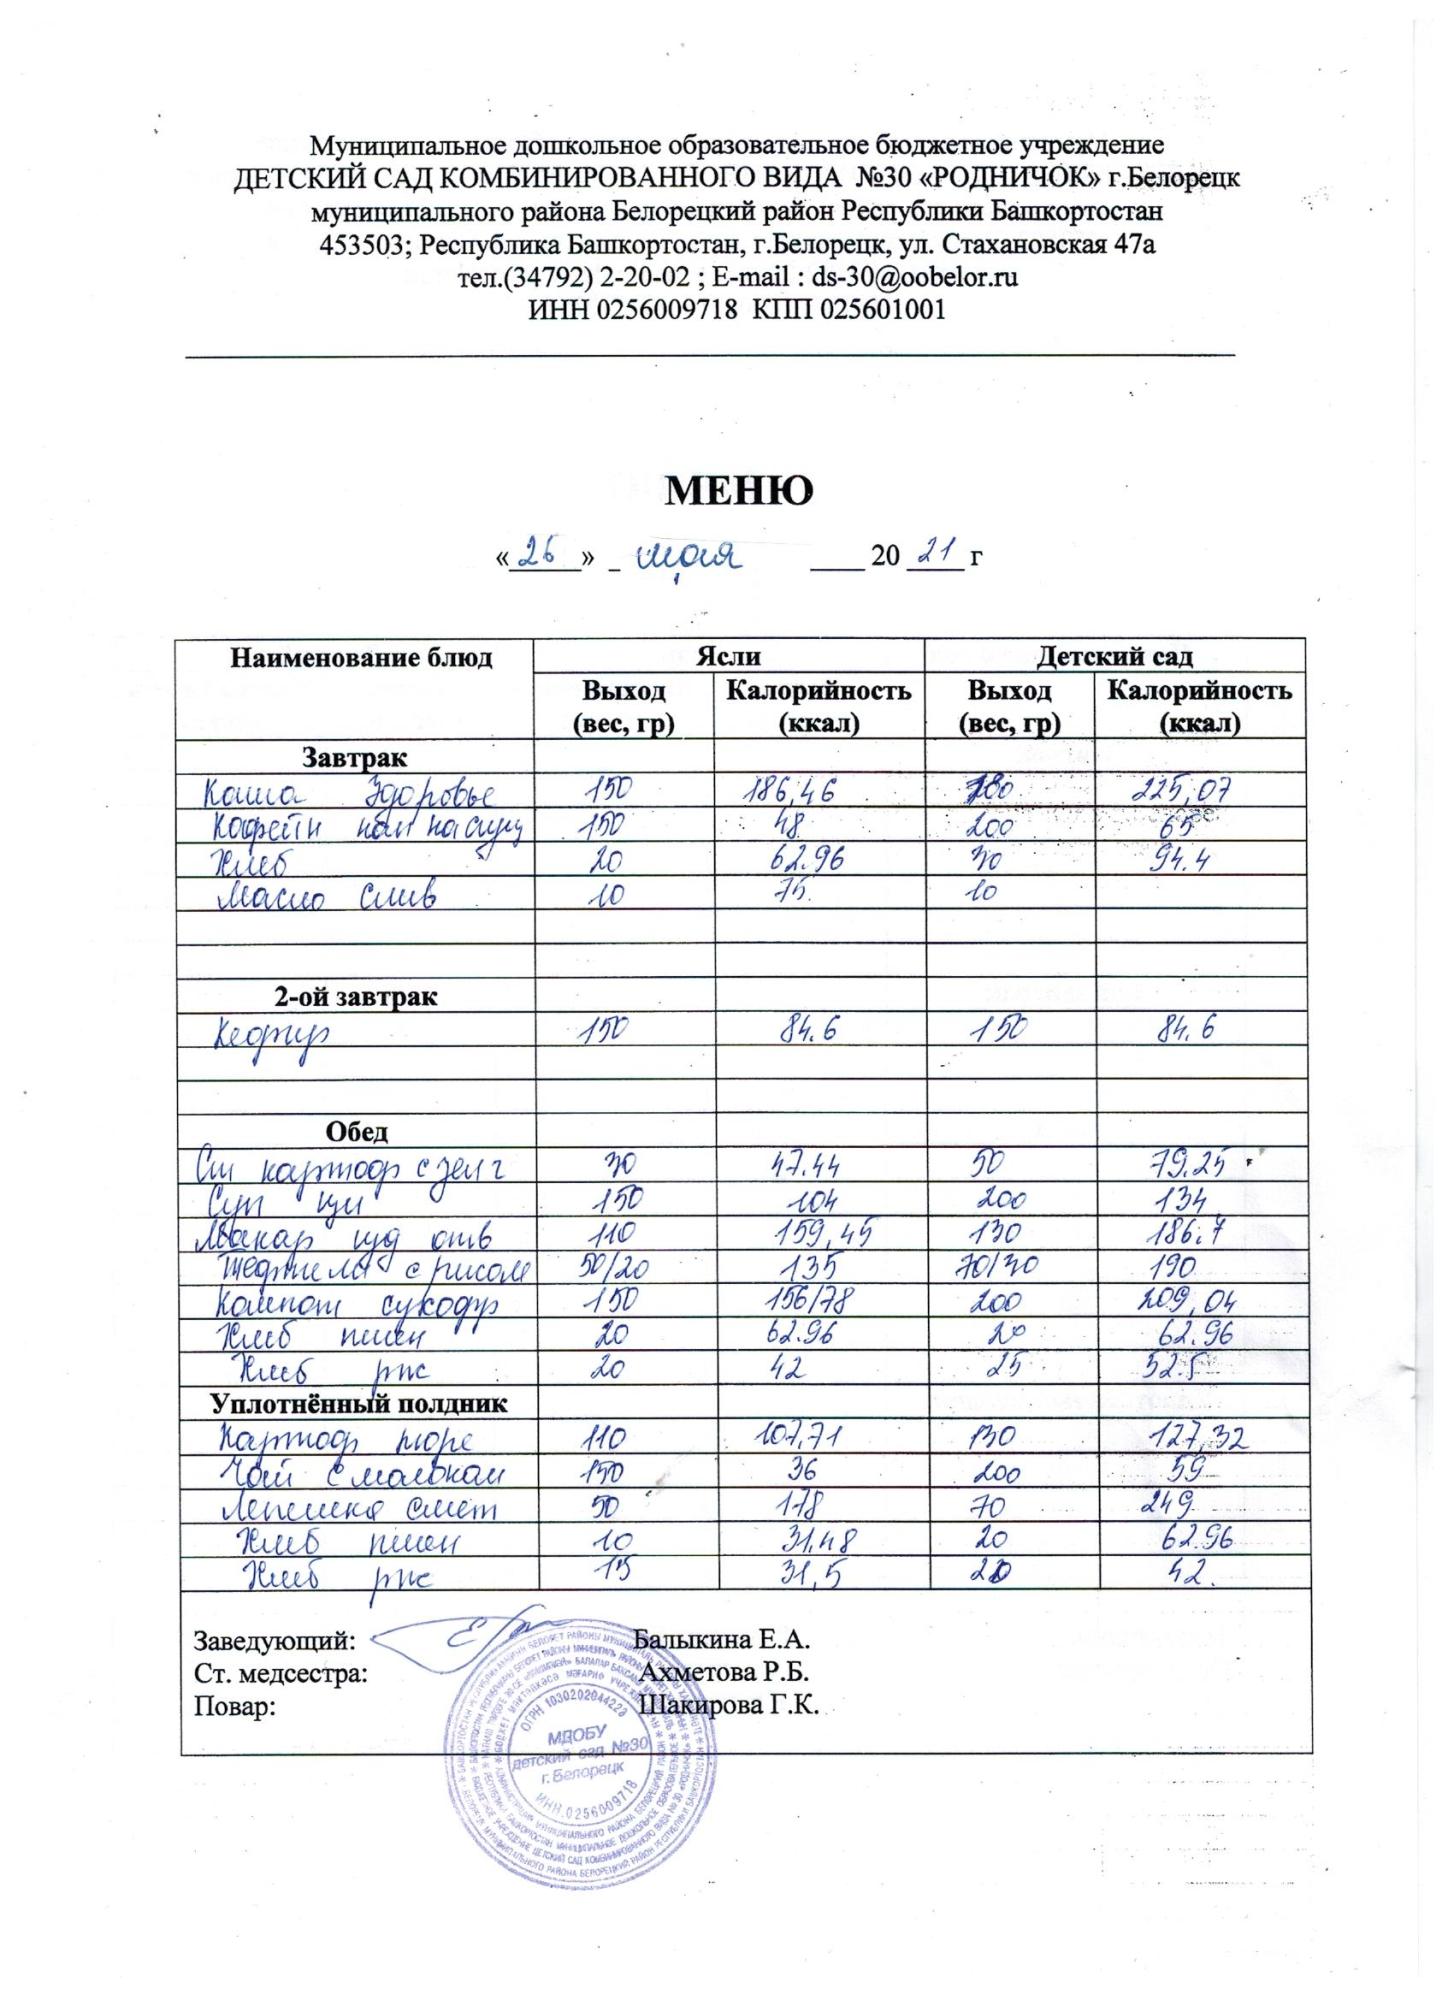 Муниципальное дошкольное образовательное бюджетное учреждение
ДЕТСКИЙ САД КОМБИНИРОВАННОГО ВИДА №30 «РОДНИЧОК» г.Белорецк
муниципального района Белорецкий район Республики Башкортостан
453503; Республика Башкортостан, г.Белорецк, ул. Стахановская 47а
тел.(34792) 2-20-02 ; E-mail : ds-30@oobelor.ru
ИНН 0256009718 КПП 025601001
МЕНЮ
«26» 20 21 г
Наименование блюд Ясли Детский сад
Выход (вес, гр) Калорийность (ккал) Выход (вес, гр) Калорийность (ккал)
Завтрак
Каша Здоровье 150 186,46 180 225,07
Кофейн нап 150 48 200 65
Хлеб 20 62.96 30 94.4
Масло слив 10 75. 10
2-ой завтрак
Кефир 150 84.6 150 84.6
Обед
картоф с зел г 30 47.44 50 79.25
Суп щи 150 104 200 134
Макар изд отв 110 159,45 130 186.7
Тефтели с рисом 50/20 135 70/30 190
Компот сухофр 150 156/78 200 209,04
Хлеб пшен 20 62.96 20 62.96
Хлеб рж 20 42 25 52.5
Уплотнённый полдник
Картоф пюре 110 107,71 130 127,32
Чай с молоком 150 36 200 59
Лепешка смет 50 178 70 249
Хлеб пшен 10 31.48 20 62.96
Хлеб рж 15 31,5 20 42.
Заведующий: Балыкина Е.А.
Ст. медсестра: Ахметова Р.Б.
Повар: Шакирова Г.К.
ОГРН 1030202044223
МДОБУ
детский сад №30
г. Белорецк
ИНН.0256009718